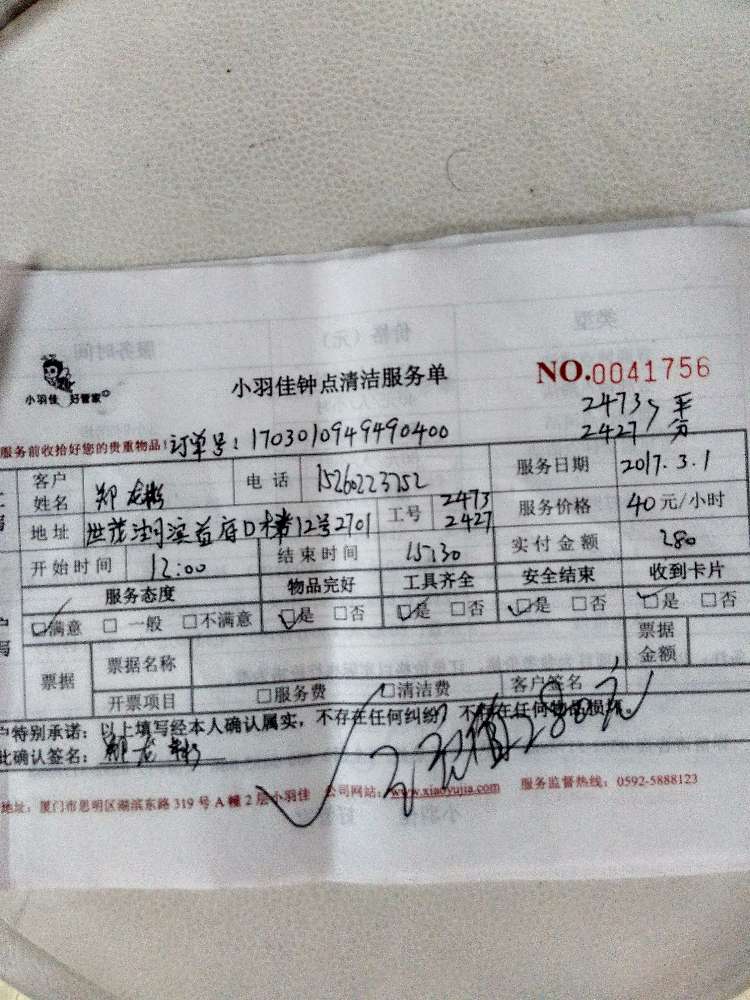 小羽佳 好管家
小羽佳钟点清洁服务单
NO.0041756
2473 平
2427 分
服务前收拾好您的贵重物品!订单号:1703010949490400
客户姓名 郑龙彬 电话 15260223752 服务日期 2017.3.1
地址 世茂湖滨首府D栋12号2701 工号 2473 2427 服务价格 40元/小时
开始时间 12:00 结束时间 15:30 实付金额 280
服务态度 物品完好 工具齐全 安全结束 收到卡片
☑满意 □一般 □不满意 ☑是 □否 ☑是 □否 ☑是 □否 ☑是 □否
票据 票据名称 票据金额
开票项目 □服务费 □清洁费 客户签名
户特别承诺:以上填写经本人确认属实,不存在任何纠纷,不存在任何物品损坏
此确认签名:郑龙彬
280元
地址:厦门市思明区湖滨东路319号A幢2层小羽佳 公司网站:www.xiaoyujia.com 服务监督热线:0592-5888123